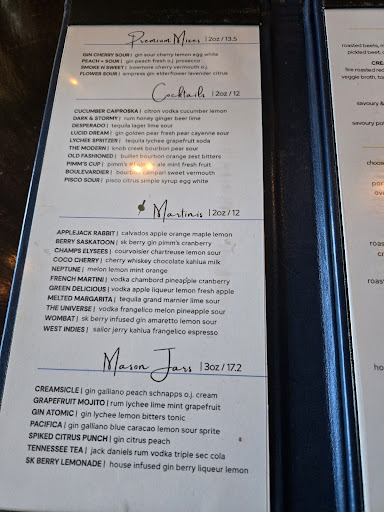 Premium Mixes | 2oz / 13.5
GIN CHERRY SOUR | gin sour cherry lemon egg white
PEACH + SOUR | gin peach fresh o.j. prosecco
SMOKE N SWEET | bowmore cherry vermouth o.j.
FLOWER SOUR | empress gin elderflower lavender citrus
Cocktails | 2oz / 12
CUCUMBER CAIPROSKA | citron vodka cucumber lemon
DARK & STORMY | rum honey ginger beer lime
DESPERADO | tequila lager lime sour
LUCID DREAM | gin golden pear fresh pear cayenne sour
LYCHEE SPRITZER | tequila lychee grapefruit soda
THE MODERN | knob creek bourbon pear sour
OLD FASHIONED | bulliet bourbon orange zest bitters
PIMM'S CUP | pimm's ale mint fresh fruit
BOULEVARDIER | bourbon campari sweet vermouth
PISCO SOUR | pisco citrus simple syrup egg white
Martinis | 2oz / 12
APPLEJACK RABBIT | calvados apple orange maple lemon
BERRY SASKATOON | sk berry gin pimm's cranberry
CHAMPS ELYSEES | courvoisier chartreuse lemon sour
COCO CHERRY | cherry whiskey chocolate kahlua milk
NEPTUNE | melon lemon mint orange
FRENCH MARTINI | vodka chambord pineapple cranberry
GREEN DELICIOUS | vodka apple liqueur lemon fresh apple
MELTED MARGARITA | tequila grand marnier lime sour
THE UNIVERSE | vodka frangelico melon pineapple sour
WOMBAT | sk berry infused gin amaretto lemon sour
WEST INDIES | sailor jerry kahlua frangelico espresso
Mason Jars | 3oz / 17.2
CREAMSICLE | gin galliano peach schnapps o.j. cream
GRAPEFRUIT MOJITO | rum lychee lime mint grapefruit
GIN ATOMIC | gin lychee lemon bitters tonic
PACIFICA | gin galliano blue caracao lemon sour sprite
SPIKED CITRUS PUNCH | gin citrus peach
TENNESSEE TEA | jack daniels rum vodka triple sec cola
SK BERRY LEMONADE | house infused gin berry liqueur lemon
roasted beets, m
CRE
fire roasted red
veggie broth, to
savoury
savoury po
choose
por
roast
c
roas
roas
cr